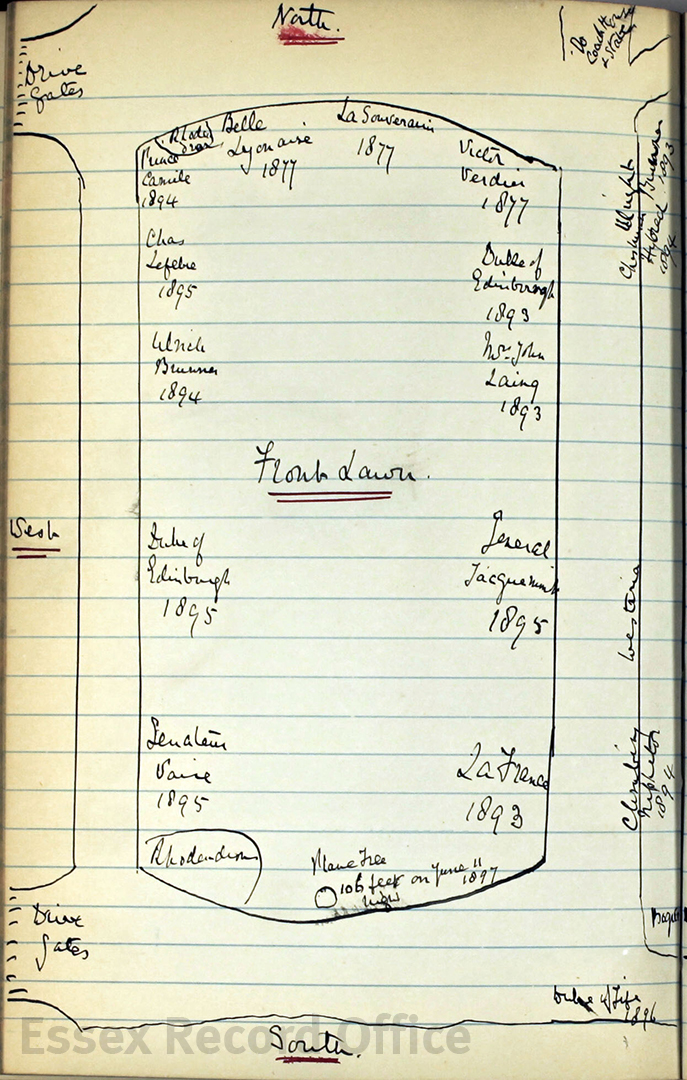 North.
To
Coach House
& Stable
Drive
Gates
Rhodod
Belle
Lyonaise
1877
La Souverain
1877
Victor
Verdier
1877
Prince
Camile
1894
Chas
Lefebre
1895
Duke of
Edinborough
1893
Ulrich
Brunner
1894
Mrs John
Laing
1893
Climbing
Hybred
Brunner
Front Lawn.
West
Duke of
Edinburgh
1895
General
Jacqueminot
1895
Westaria
Senateur
Vaise
1895
La France
1893
Climbing
Niphetos
1894
Rhodendrons
Plane Tree
106 feet on June 11
1897
high
Drive
Gates
Duke of Fife
1896
South.
Essex Record Office